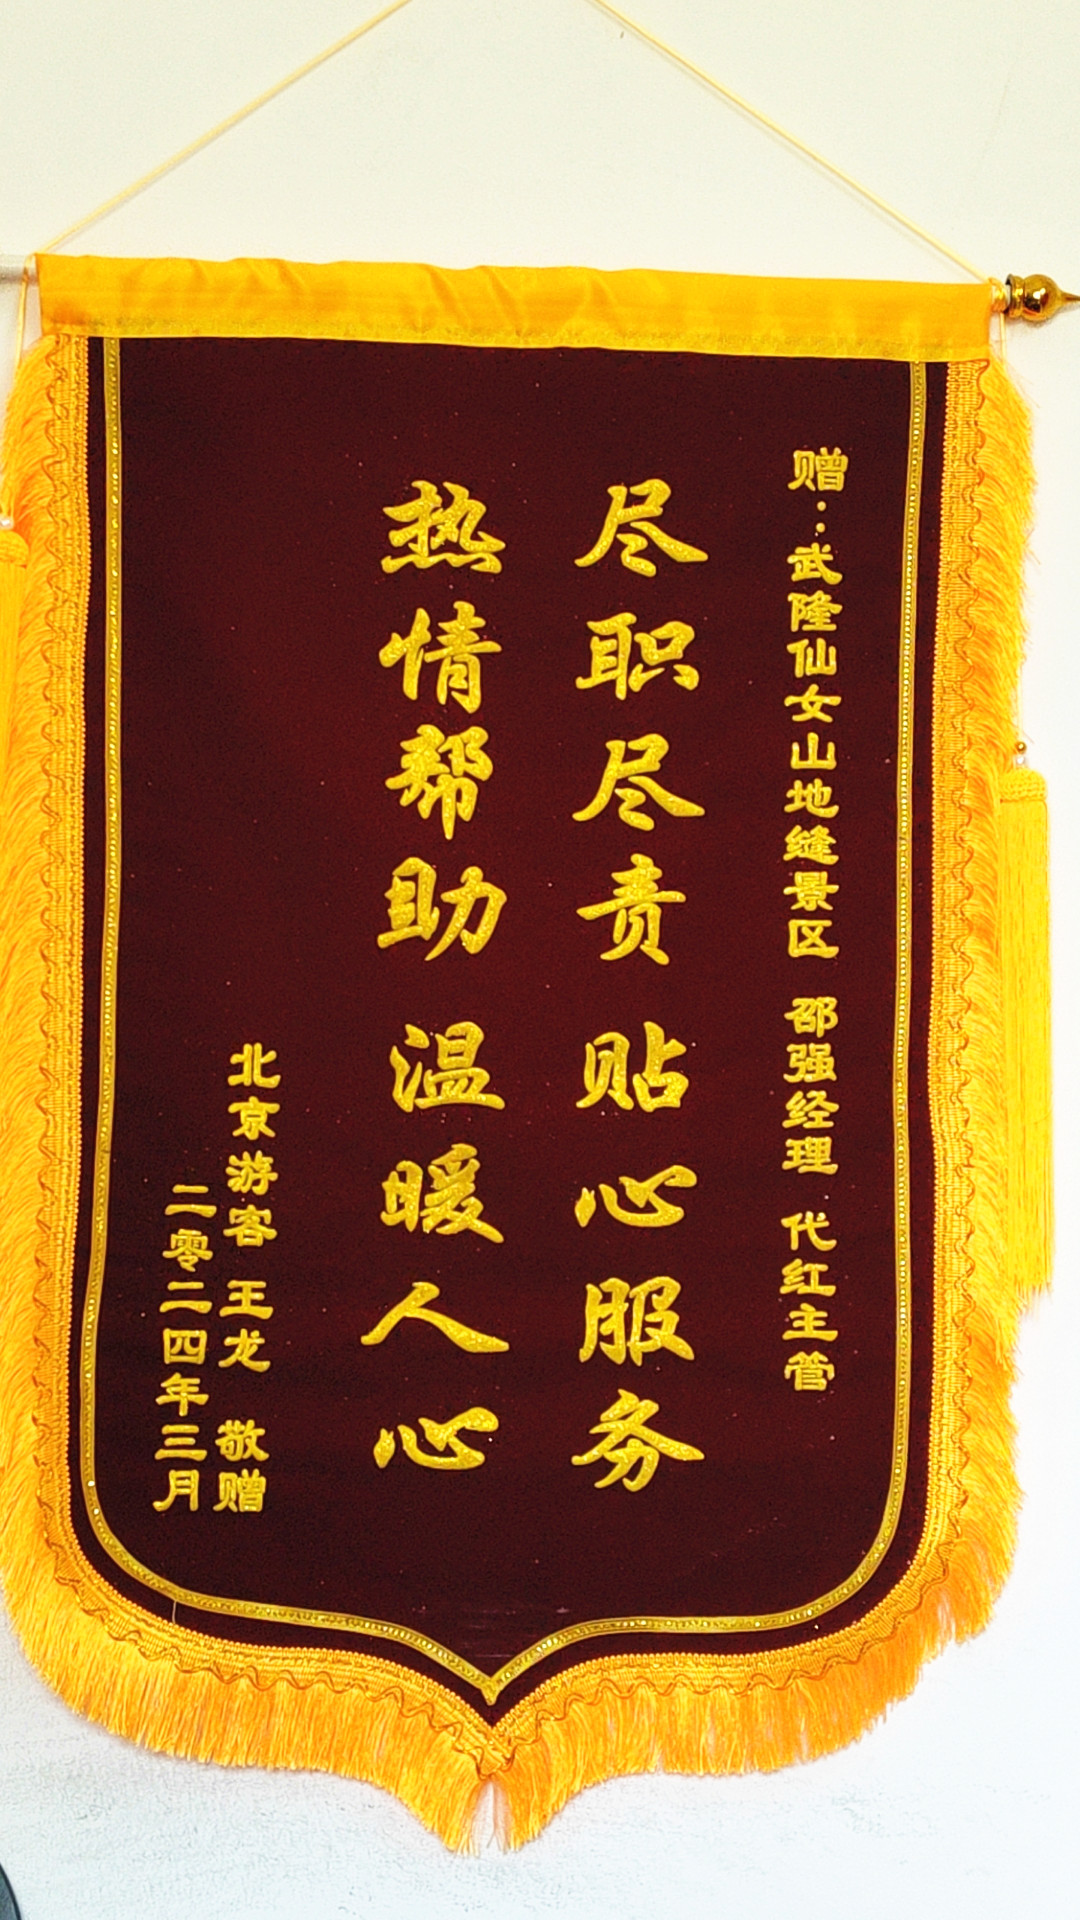 赠：武隆仙女山地缝景区 邵强经理 代红主管
尽职尽责 贴心服务
热情帮助 温暖人心
北京游客 王龙 敬赠
二零二四年三月